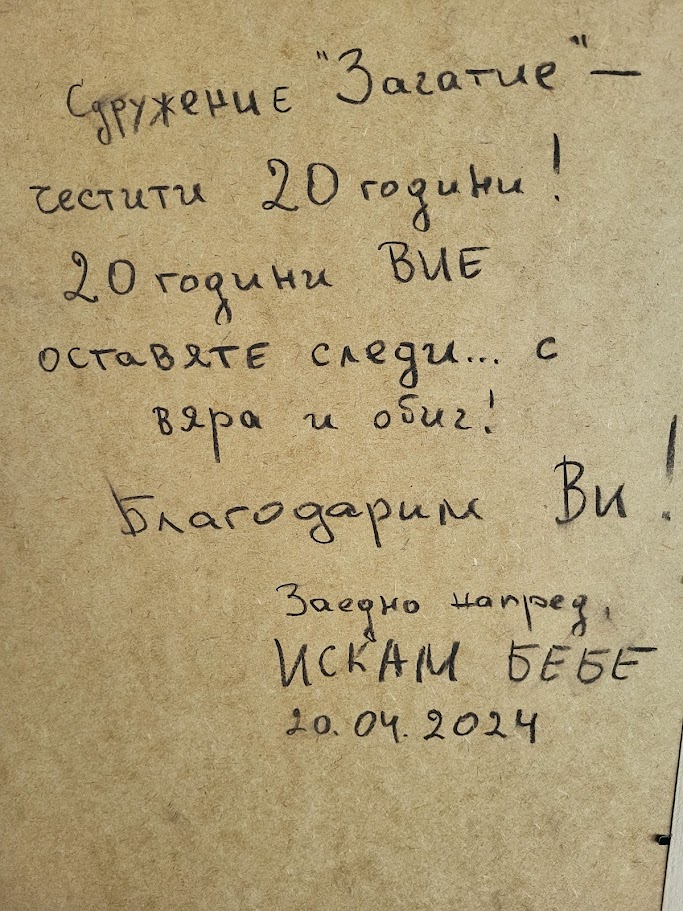 Сдружение "Зачатие" —
честити 20 години!
20 години ВИЕ
оставяте следи... с
вяра и обич!
Благодарим Ви!
Заедно напред,
ИСКАМ БЕБЕ
20.04.2024